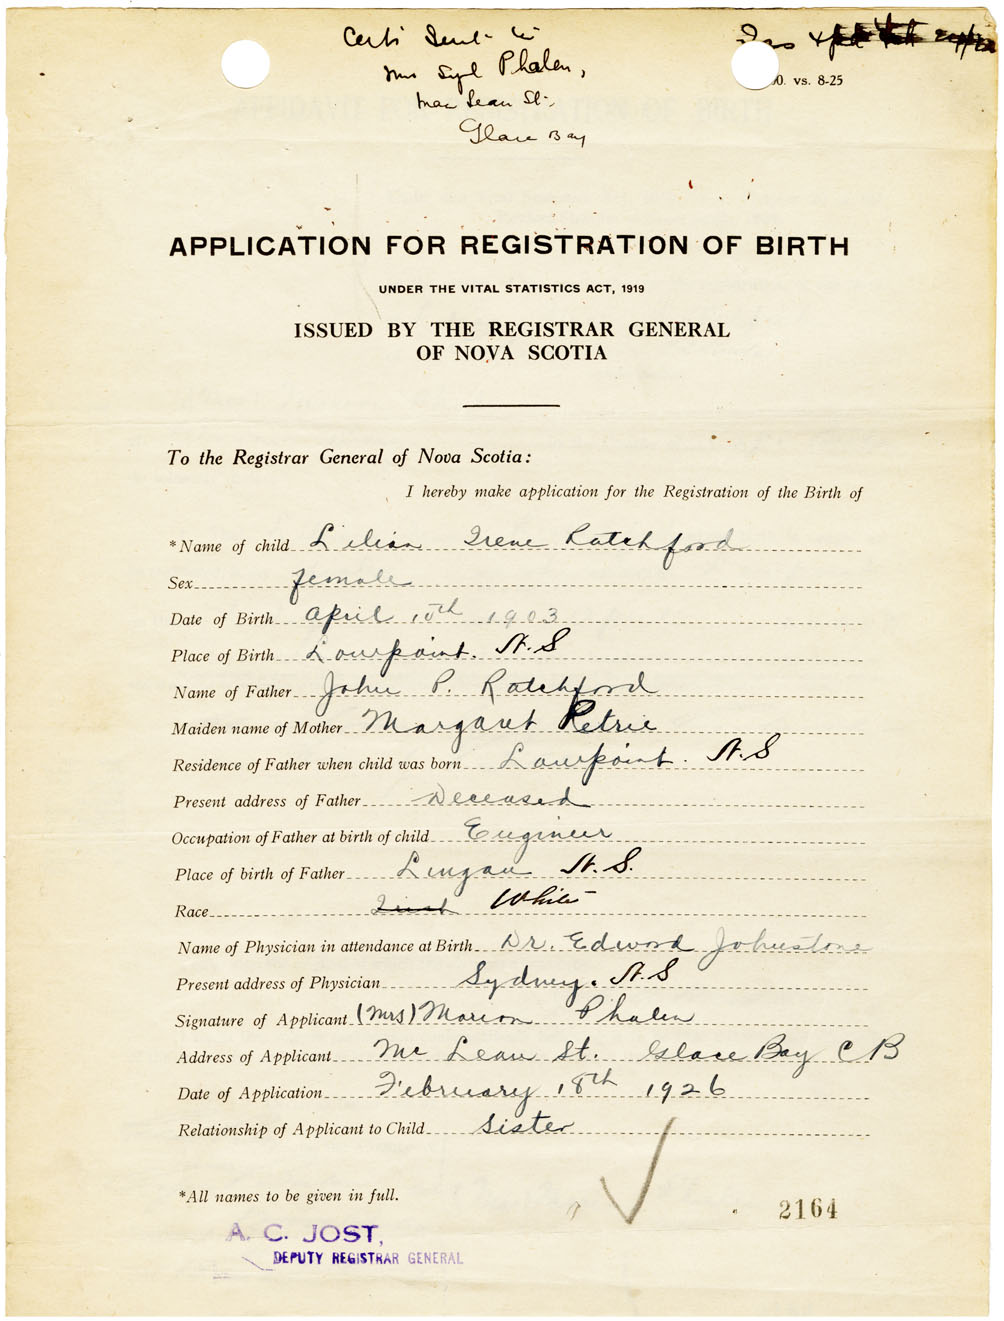 Certi Sent to
Mrs Syl Phalen,
Mac Lean St.,
Glace Bay
00. vs. 8-25
APPLICATION FOR REGISTRATION OF BIRTH
UNDER THE VITAL STATISTICS ACT, 1919
ISSUED BY THE REGISTRAR GENERAL
OF NOVA SCOTIA
To the Registrar General of Nova Scotia:
I hereby make application for the Registration of the Birth of
*Name of child Lilian Irene Ratchford
Sex female
Date of Birth April 10th 1903
Place of Birth Lowpoint. N.S
Name of Father John P. Ratchford
Maiden name of Mother Margaret Petrie
Residence of Father when child was born Lowpoint. N.S
Present address of Father Deceased
Occupation of Father at birth of child Engineer
Place of birth of Father Lingan N.S.
Race Irish White
Name of Physician in attendance at Birth Dr. Edward Johnstone
Present address of Physician Sydney. N.S
Signature of Applicant (Mrs) Marion Phalen
Address of Applicant Mc Lean St. Glace Bay C B
Date of Application February 18th 1926
Relationship of Applicant to Child Sister
*All names to be given in full.
2164
A. C. JOST,
DEPUTY REGISTRAR GENERAL